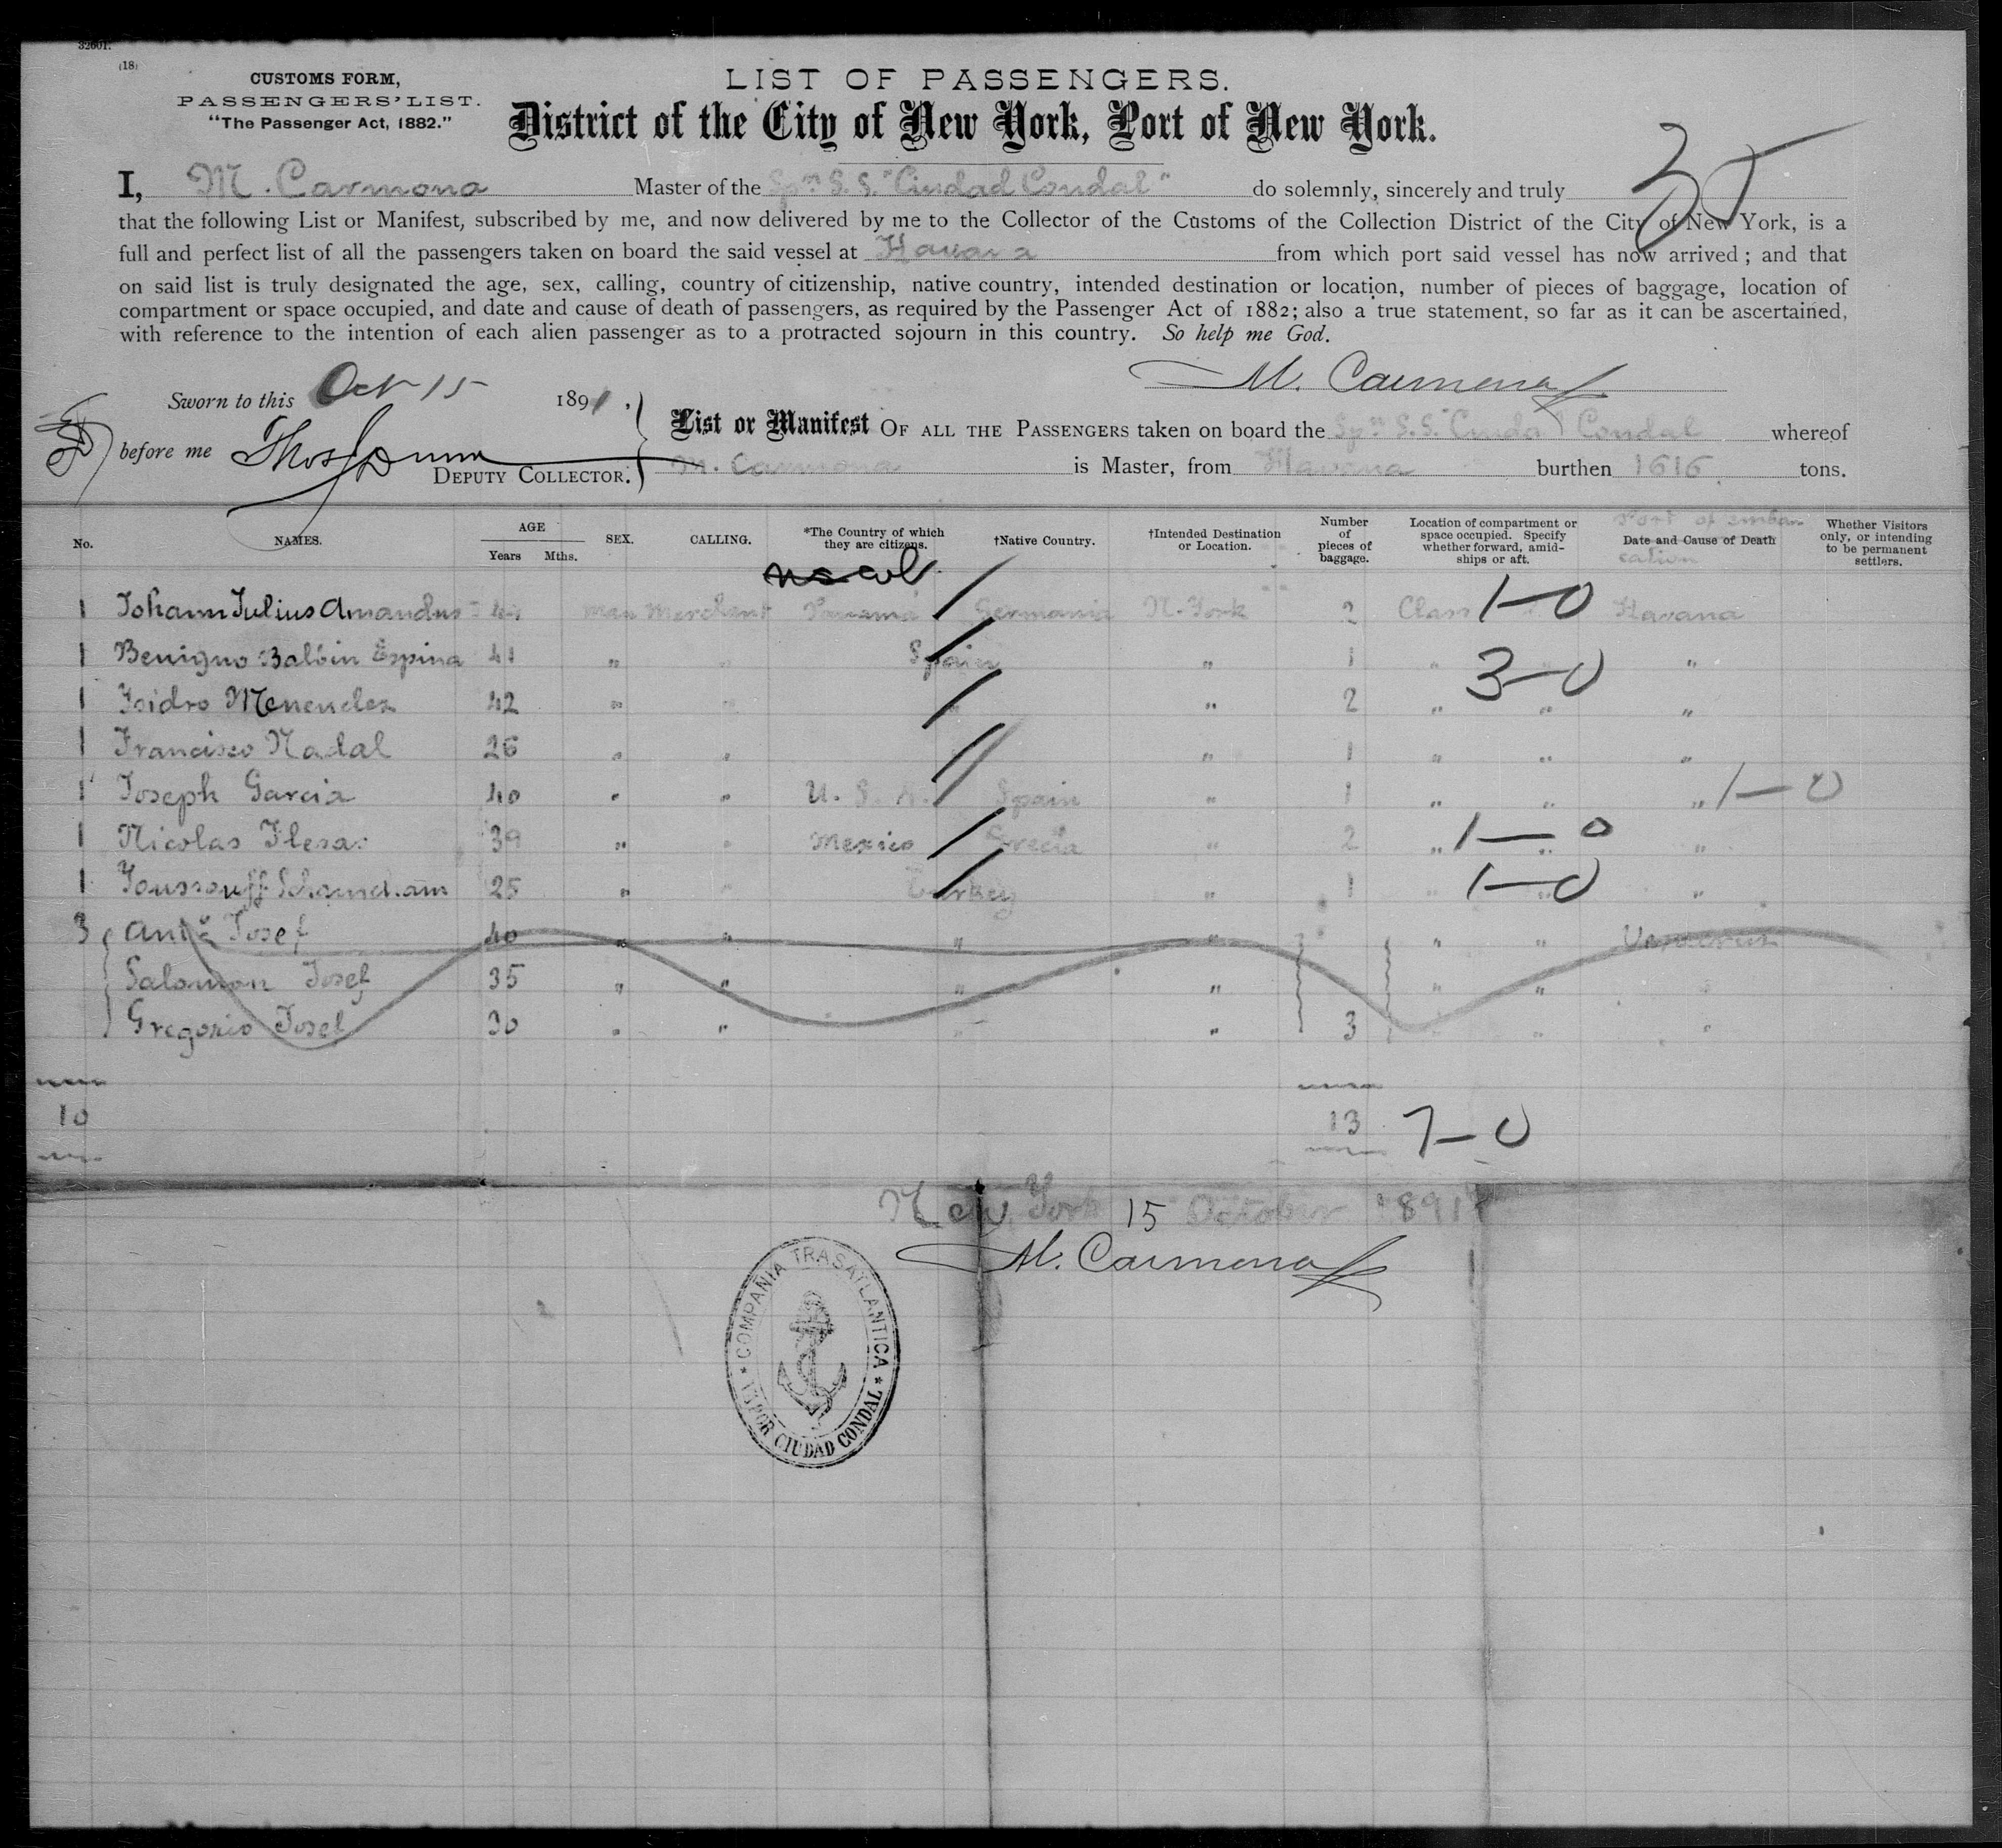 32601.
(18)
CUSTOMS FORM,
PASSENGERS' LIST.
"The Passenger Act, 1882."
LIST OF PASSENGERS.
District of the City of New York, Port of New York.
35
I, M. Carmona Master of the Spn S. S. "Ciudad Condal" do solemnly, sincerely and truly
that the following List or Manifest, subscribed by me, and now delivered by me to the Collector of the Customs of the Collection District of the City of New York, is a
full and perfect list of all the passengers taken on board the said vessel at Havana from which port said vessel has now arrived; and that
on said list is truly designated the age, sex, calling, country of citizenship, native country, intended destination or location, number of pieces of baggage, location of
compartment or space occupied, and date and cause of death of passengers, as required by the Passenger Act of 1882; also a true statement, so far as it can be ascertained,
with reference to the intention of each alien passenger as to a protracted sojourn in this country. So help me God.
M. Carmona
Sworn to this Oct 15 1891,
before me
DEPUTY COLLECTOR.
List or Manifest OF ALL THE PASSENGERS taken on board the Spn S. S. "Ciudad Condal whereof
M. Carmona is Master, from Havana burthen 1616 tons.
No. NAMES. AGE Years Mths. SEX. CALLING. *The Country of which they are citizens. †Native Country. †Intended Destination or Location. Number of pieces of baggage. Location of compartment or space occupied. Specify whether forward, amidships or aft. Date and Cause of Death Port of embarcation Whether Visitors only, or intending to be permanent settlers.
1 Johann Julius Amandus man Merchant Panama Germania N. York 2 Class 1-0 Havana
1 Benigno Balbin Espina 41 " " Spain " 1 " 3-0 "
1 Isidro Menendez 42 " " " 2 " " "
1 Francisco Nadal 26 " " " 1 " " "
1 Joseph Garcia 40 " " U. S. A. Spain " 1 " " " 1-0
1 Nicolas 39 " " Mexico Grecia " 2 " 1-0 " "
1 Youssouff 25 " " Turkey " 1 " 1-0 " "
3 Josef 40 " " " " " " Veracruz
Salomon Josef 35 " " " " " " "
Gregorio Josef 30 " " " " 3 " " "
10 13 7-0
New York 15 October 1891
M. Carmona
COMPAÑIA TRASATLANTICA
* VAPOR CIUDAD CONDAL *